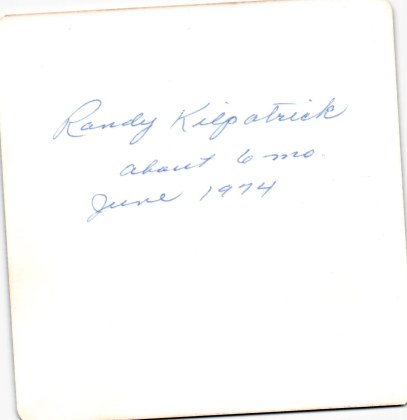 Randy Kilpatrick
about 6 mo.
June 1974